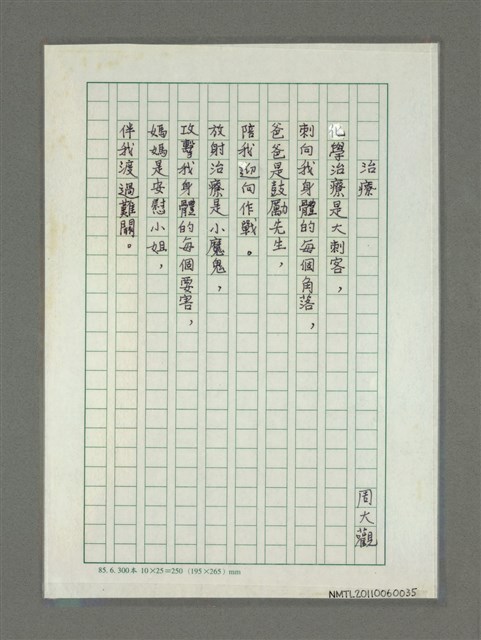 治療
周大觀
化學治療是大刺客，
刺向我身體的每個角落，
爸爸是鼓勵先生，
陪我迎向作戰。
放射治療是小魔鬼，
攻擊我身體的每個要害，
媽媽是安慰小姐，
伴我渡過難關。
85. 6. 300本 10×25=250 (195×265) mm
NMTL20110060035